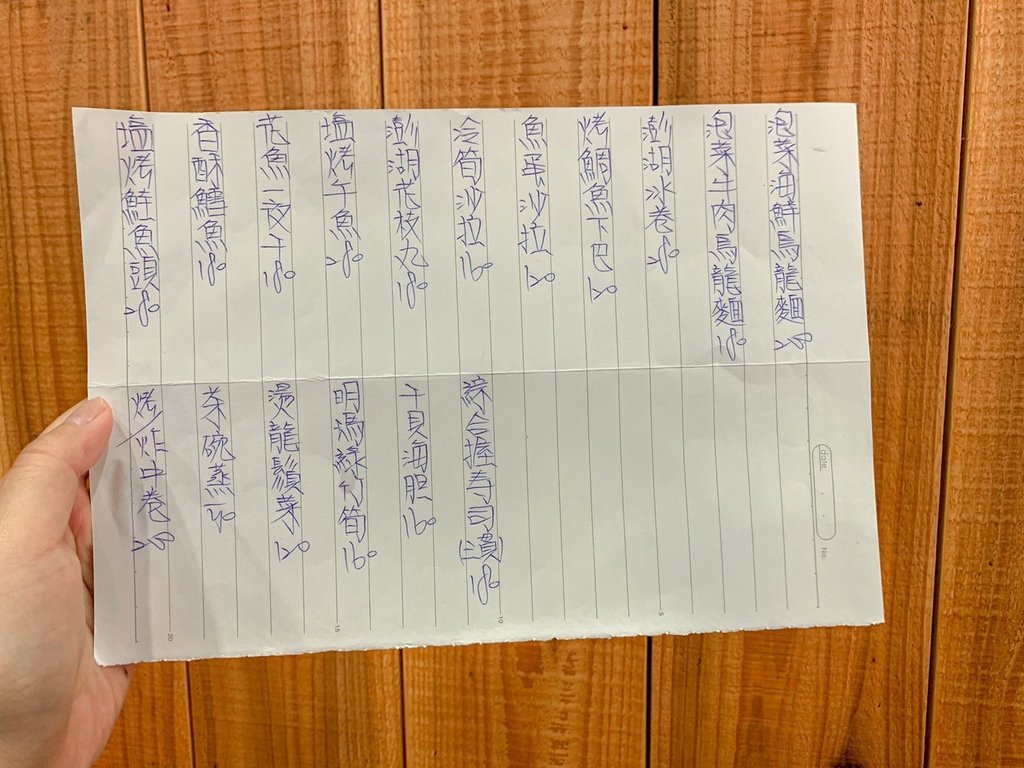 泡菜海鮮烏龍麵 200
泡菜牛肉烏龍麵 180
澎湖冰卷 280
烤鯛魚下巴 120
魚蛋沙拉 120
冷筍沙拉 160
澎湖花枝丸 180
塩烤午魚 280
花魚一夜干 180
香酥鱈魚 180
塩烤鮭魚頭 280
綜合握寿司(5貫) 180
干貝海胆 160
明瑪綠竹筍 160
燙龍鬚菜 120
茶碗蒸 50
烤/炸中卷 250
date
No
5
10
15
20